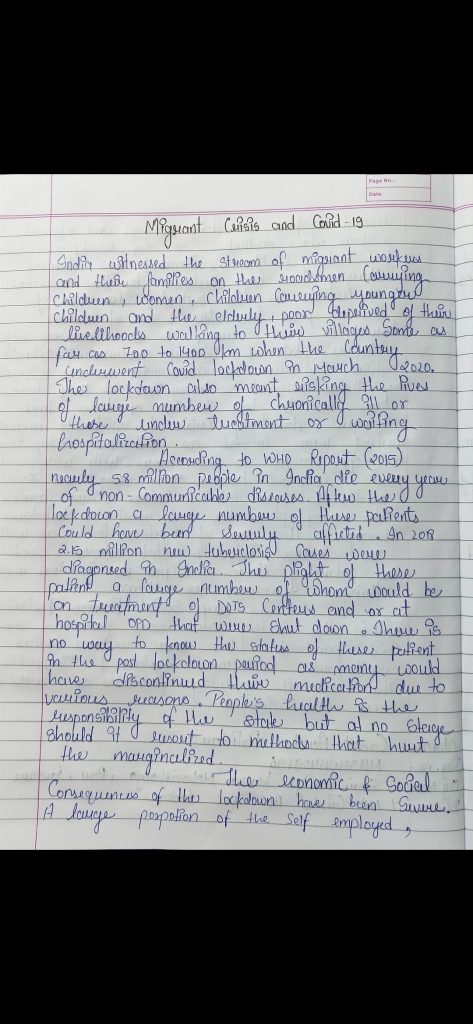 Page No.:
Date:
Migrant Crisis and Covid-19
India witnessed the stream of migrant workers
and their families on the roadsmen Carrying
Children, women, children Carrying younger
children and the elderly, poor deprived of their
livelihoods walking to their villages Some as
far as 700 to 1400 km when the Country
underwent Covid lockdown in March 2020.
The lockdown also meant risking the lives
of large number of chronically ill or
those under treatment or waiting
hospitalization.
According to WHO Report (2015)
nearly 58 million people in India die every year
of non-Communicable diseases. After the
lockdown a large number of these patients
Could have been Severely afficted. In 2018
2.15 million new tuberclosis Cases were
diagonsed in India. The plight of these
patient a large number of whom would be
on treatment of DOTS Centers and or at
hospital OPD that were Shut down. There is
no way to know the status of these patient
in the post lockdown period as many would
have discontinued their medication due to
various reasons. People's health is the
responsibility of the state but at no stage
should it resort to methods that hurt
the marginalized.
The economic & Social
Consequences of the lockdown have been Severe.
A large porpotion of the self employed,